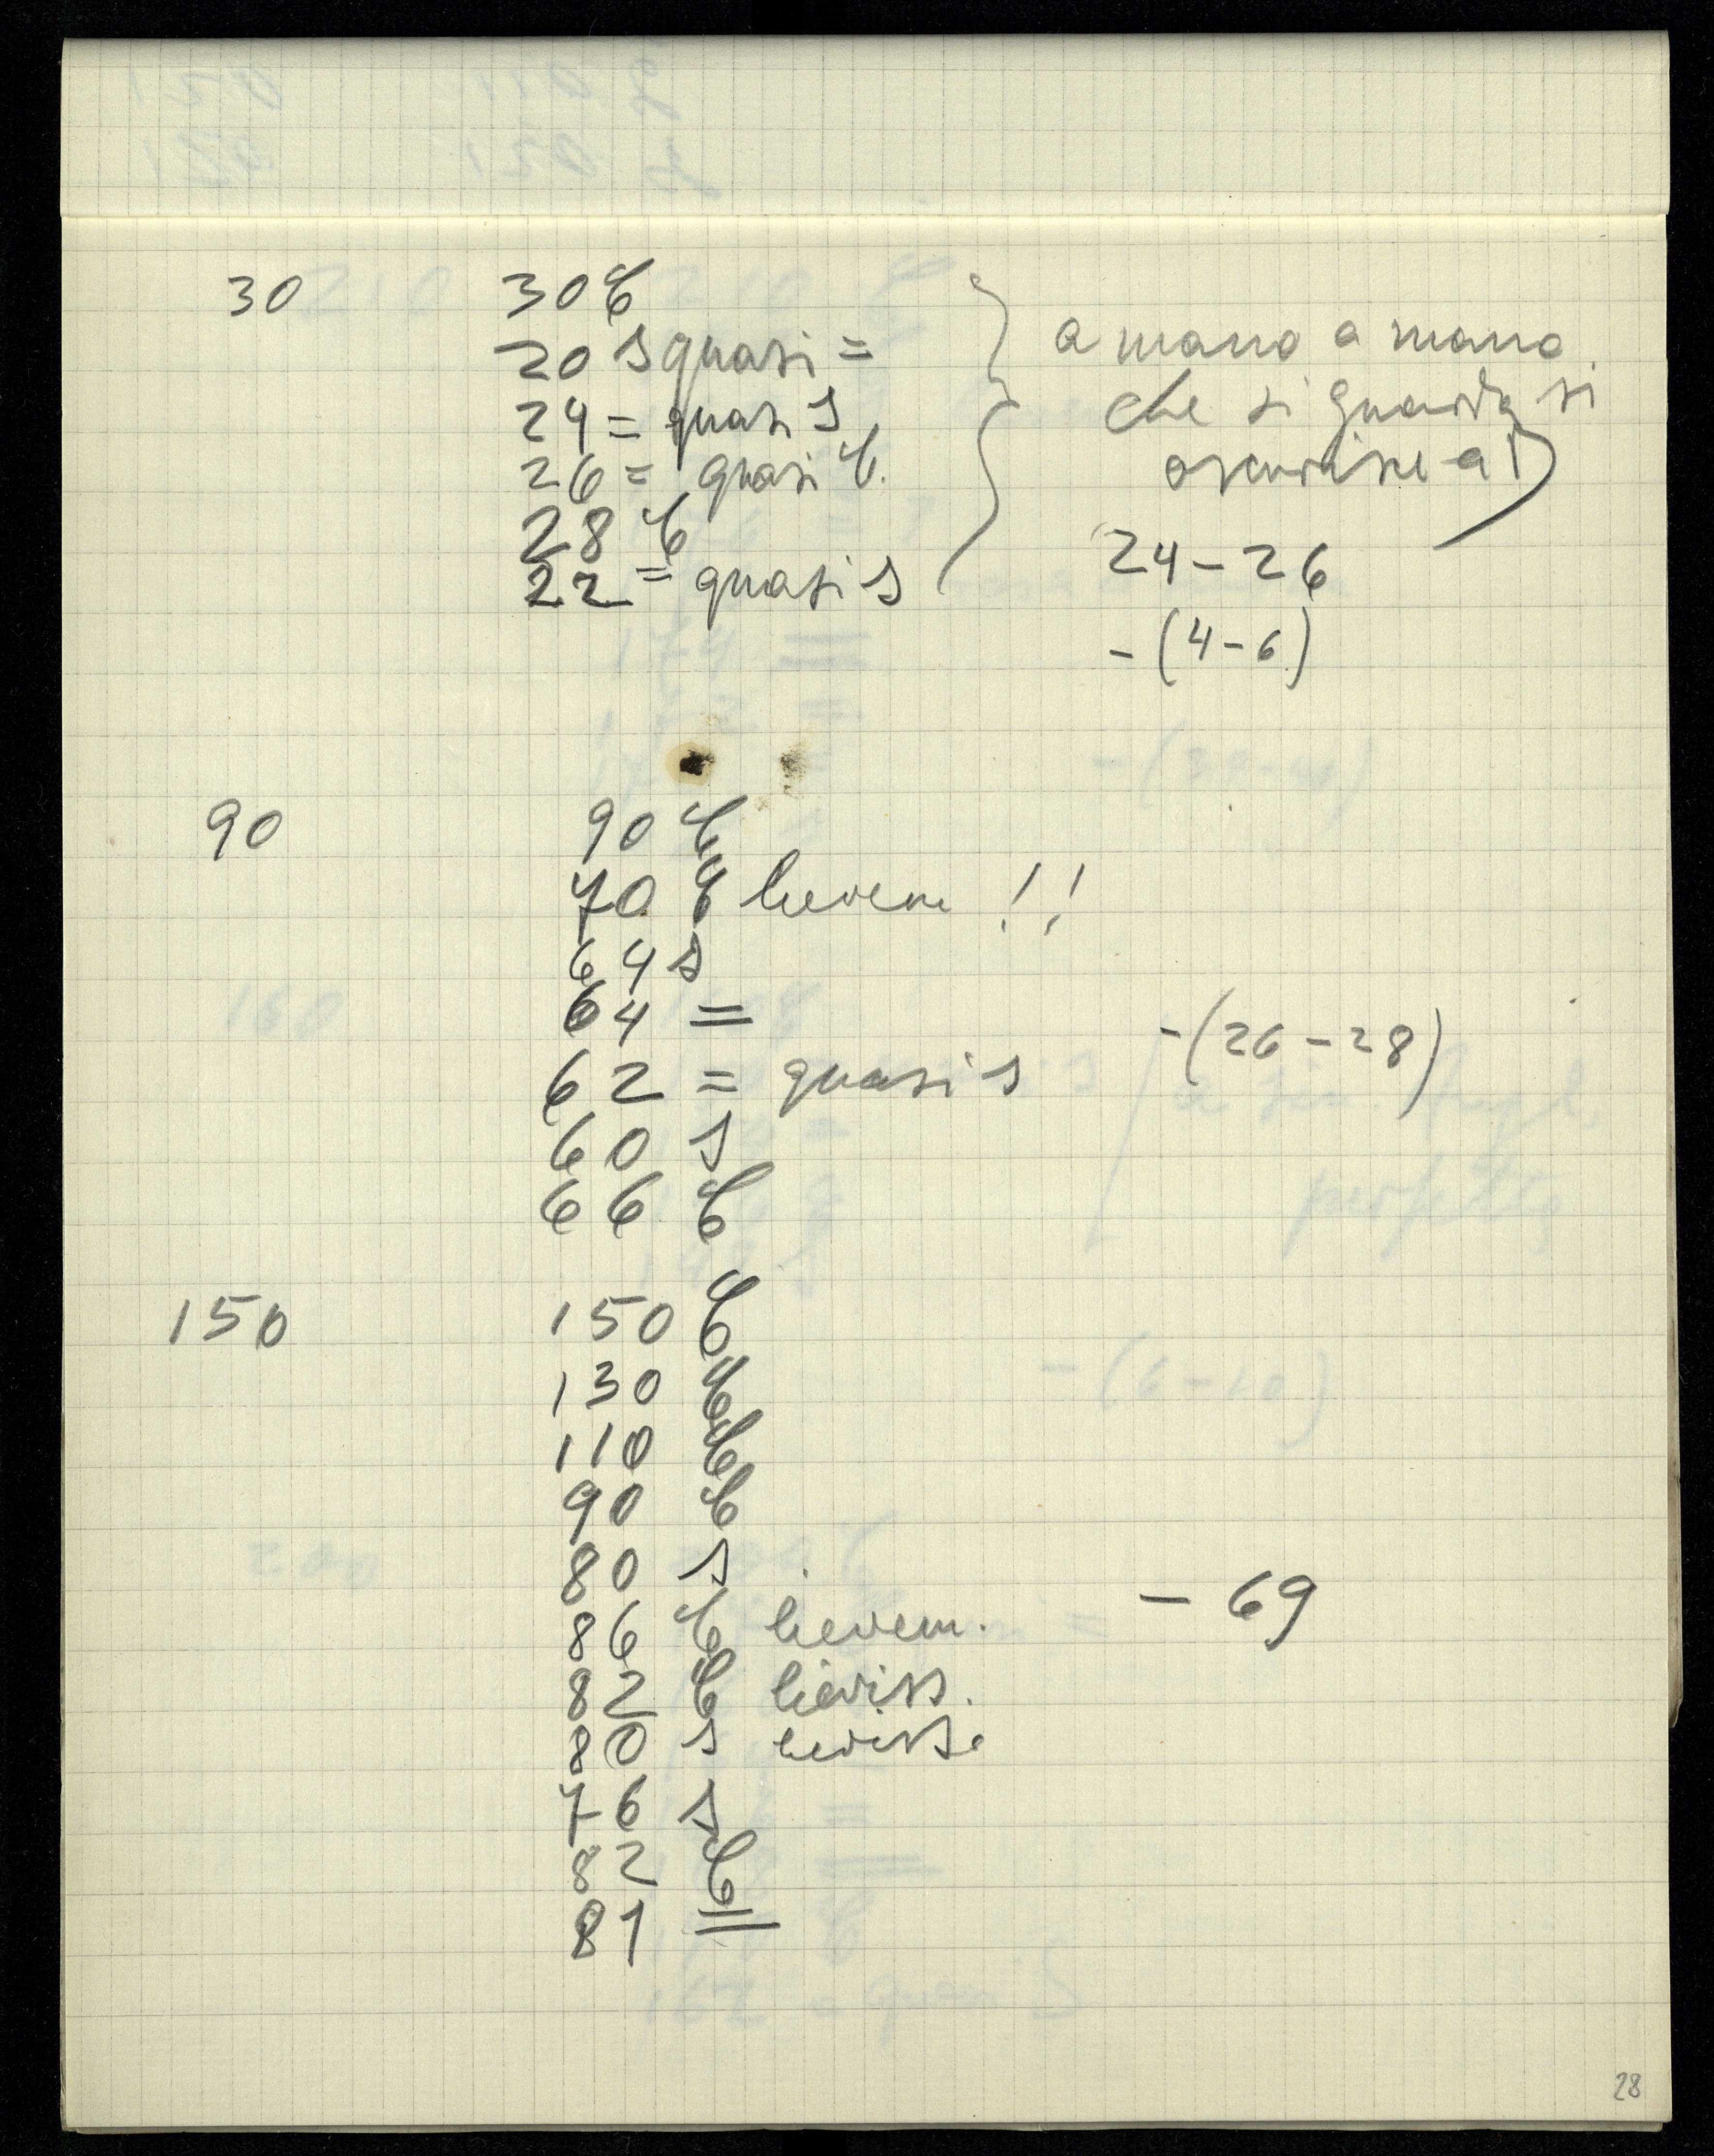 30 30 b
20 s quasi =
24 = quasi s
26 = quasi b.
28 b
22 = quasi s
a mano a mano
che si guarda si
24 - 26
- (4 - 6)
90 90 b
70 b lievem !!
64 s
64 =
62 = quasi s
- (26 - 28)
60 s
66 b
150 150 b
130 b
110 b
90 b
80 s
86 b lievem.
- 69
82 b lieviss.
80 s lieviss.
76 s
82 b
81 =
28